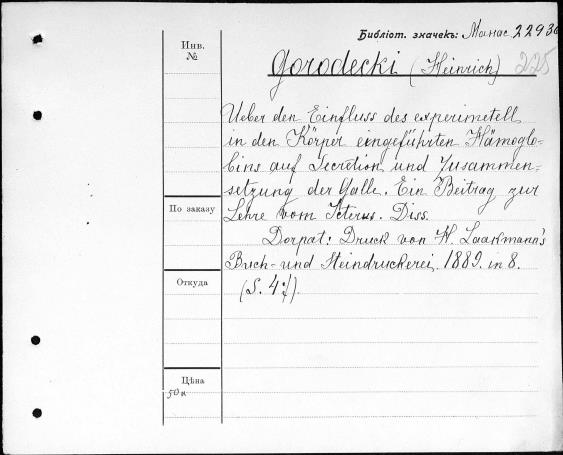 Библіот. значекъ: Манас. 2293
Инв.
№
Gorodecki (Heinrich) 225
Ueber den Einfluss des experimetell
in den Körper eingeführten Hämoglo-
bins auf Secretion und Zusammen-
setzung der Galle. Ein Beitrag zur
Lehre vom Icterus. Diss.
По заказу
Dorpat: Druck von H. Laakmann's
Buch- und Steindruckerei, 1889. in 8.
Откуда
Цѣна
50 к